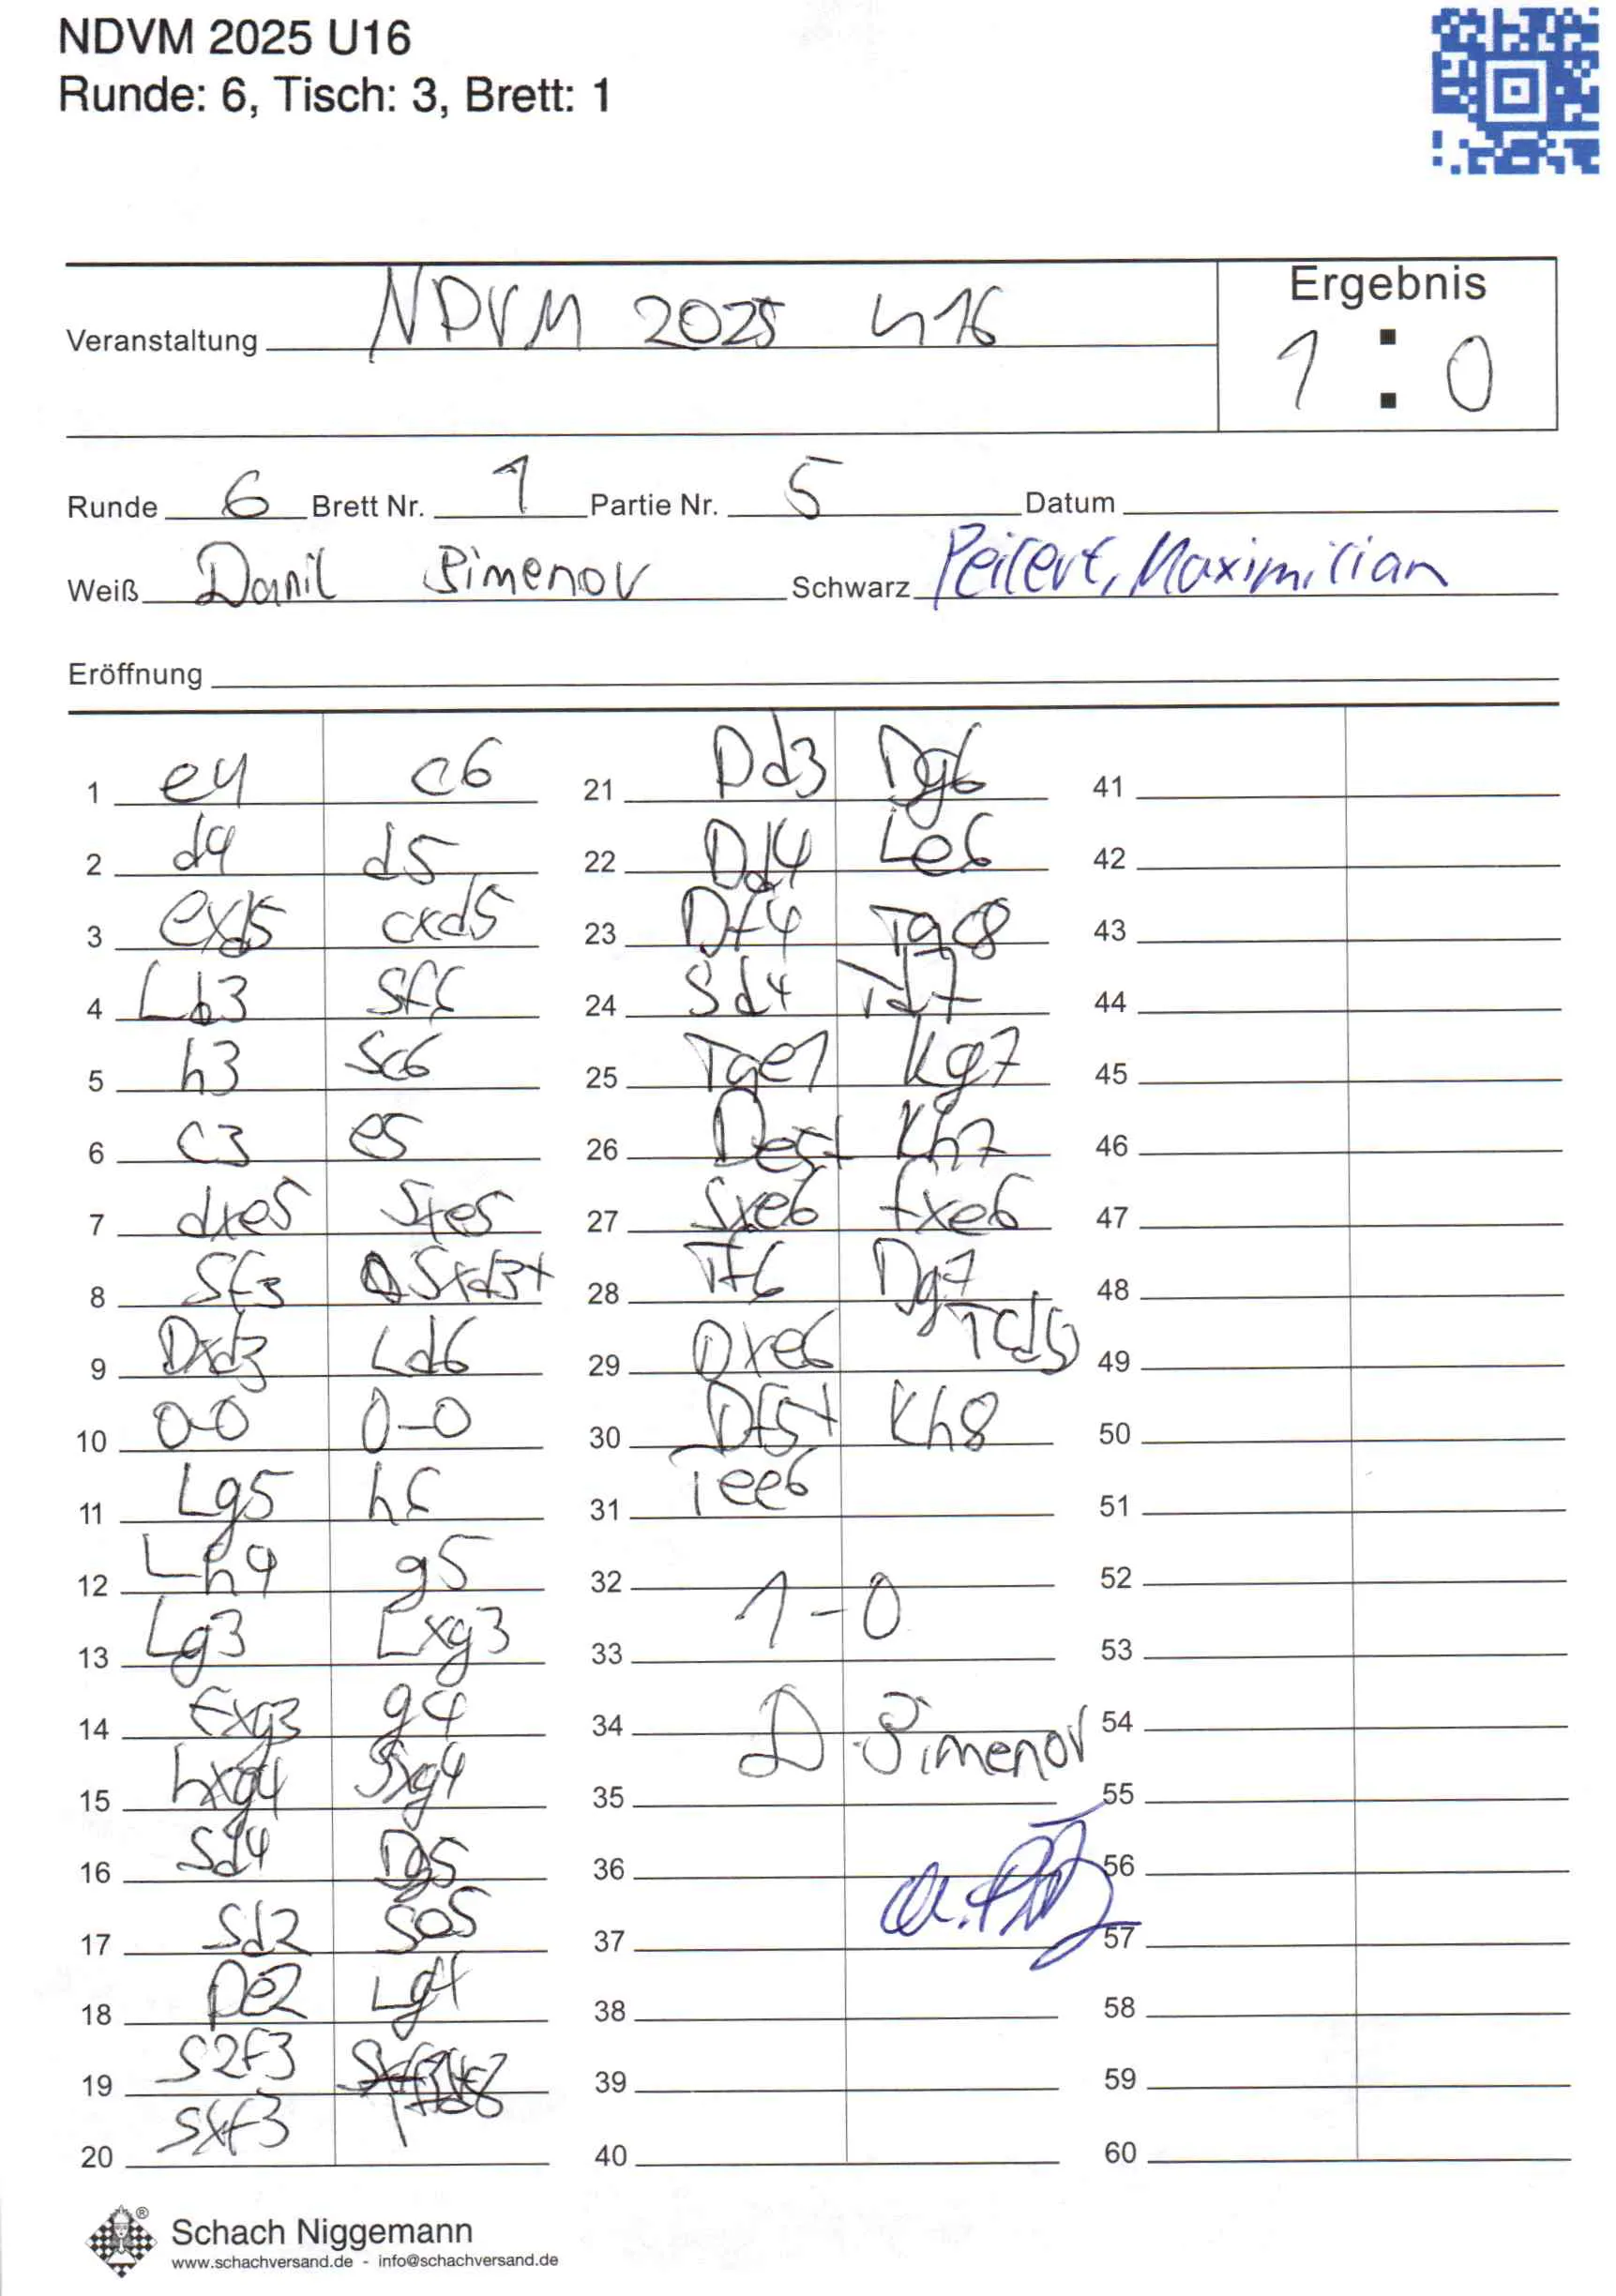 NDVM 2025 U16
Runde: 6, Tisch: 3, Brett: 1
Veranstaltung NDVM 2025 U16
Ergebnis
1 : 0
Runde 6 Brett Nr. 1 Partie Nr. 5 Datum
Weiß Danil Pimenov Schwarz Peilert, Maximilian
Eröffnung
1 e4 c6
2 d4 d5
3 exd5 cxd5
4 Ld3 Sf6
5 h3 Sc6
6 c3 e5
7 dxe5 Sxe5
8 Sf3 Sxd3+
9 Dxd3 Ld6
10 0-0 0-0
11 Lg5 h6
12 Lh4 g5
13 Lg3 Lxg3
14 fxg3 g4
15 hxg4 Sxg4
16 Sd4 Dg5
17 Sd2 Se5
18 De2 Lg4
19 S2f3
20 Sxf3
21 Dd3 Dg6
22 Dd4 Le6
23 Df4 Tac8
24 Sd4 Td7
25 Tae1 Kg7
26 De5+ Kh7
27 Sxe6 fxe6
28 Tf6 Dg7
29 Dxe6 Tcd8
30 Df5+ Kh8
31 Tee6
32 1-0
33
34 D. Pimenov
35
36
37
38
39
40
41
42
43
44
45
46
47
48
49
50
51
52
53
54
55
56
57
58
59
60
Schach Niggemann
www.schachversand.de - info@schachversand.de